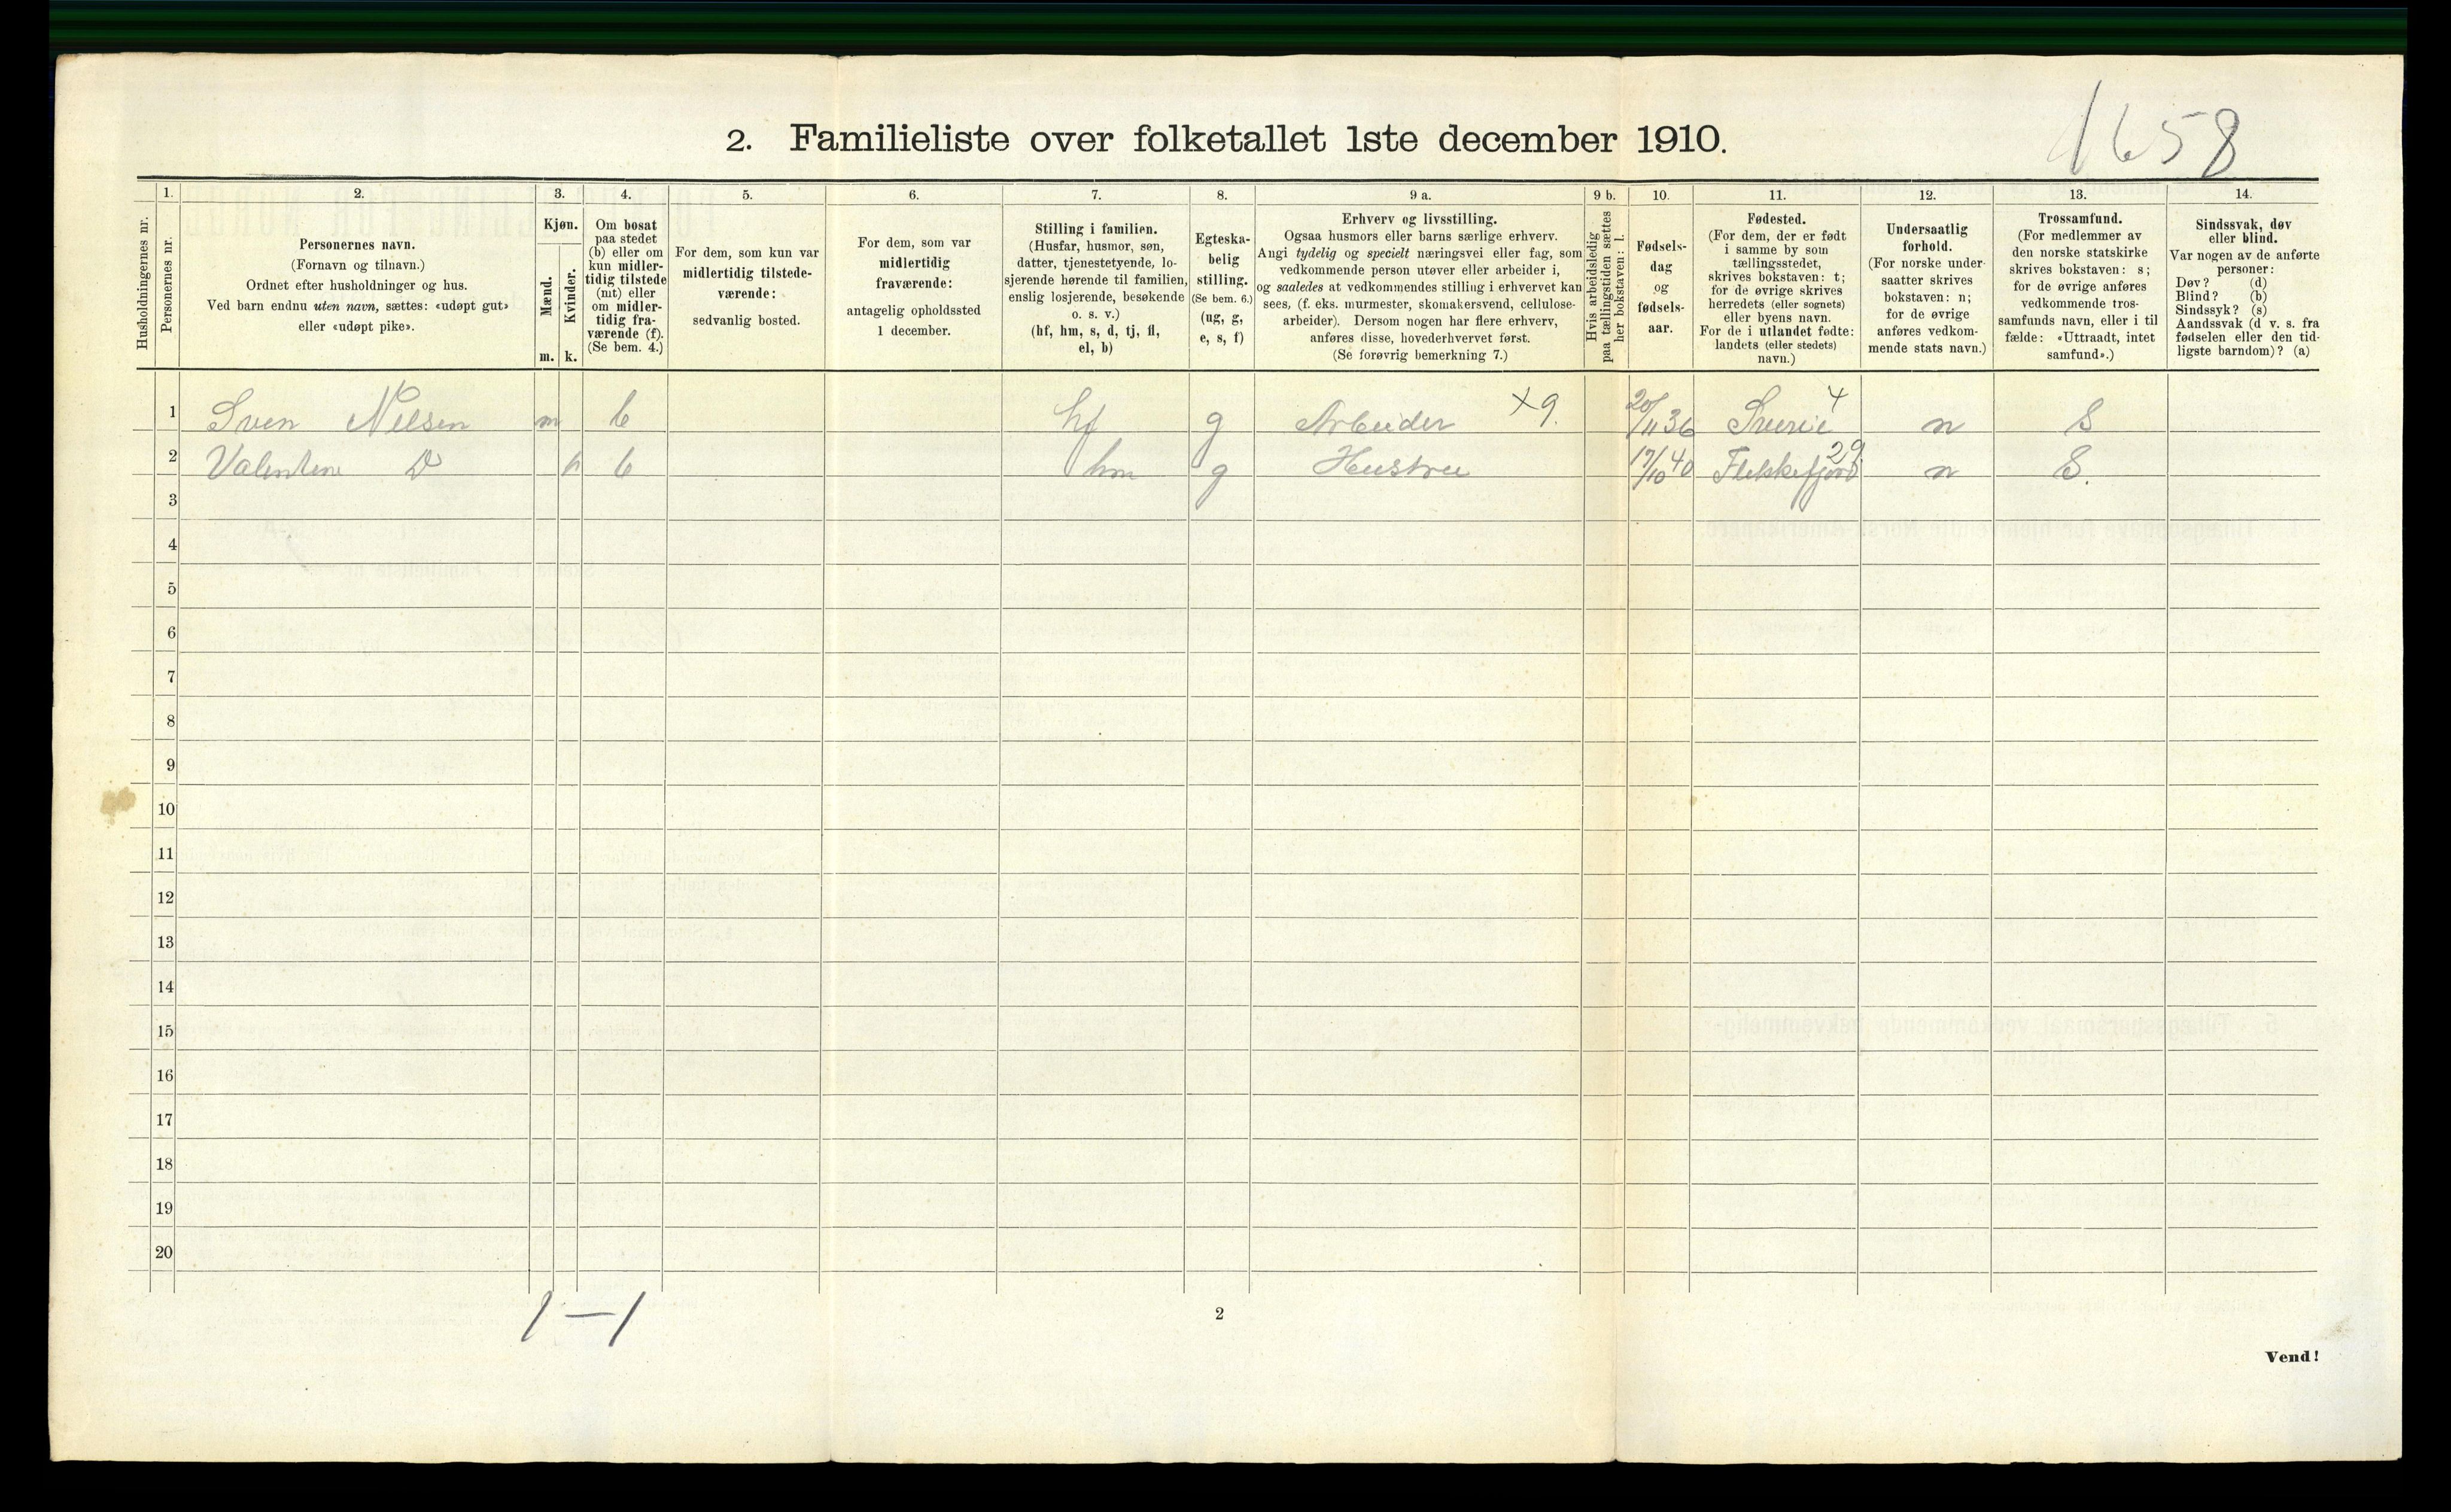 1658
2. Familieliste over folketallet 1ste december 1910.
Husholdningernes nr.
1.
Personernes nr.
2.
Personernes navn.
(Fornavn og tilnavn.)
Ordnet efter husholdninger og hus.
Ved barn endnu uten navn, sættes: «udøpt gut»
eller «udøpt pike».
3.
Kjøn.
Mænd.
Kvinder.
m. k.
4.
Om bosat
paa stedet
(b) eller om
kun midler-
tidig tilstede
(mt) eller
om midler-
tidig fra-
værende (f).
(Se bem. 4.)
5.
For dem, som kun var
midlertidig tilstede-
værende:
sedvanlig bosted.
6.
For dem, som var
midlertidig
fraværende:
antagelig opholdssted
1 december.
7.
Stilling i familien.
(Husfar, husmor, søn,
datter, tjenestetyende, lo-
sjerende hørende til familien,
enslig losjerende, besøkende
o. s. v.)
(hf, hm, s, d, tj, fl,
el, b)
8.
Egteska-
belig
stilling.
(Se bem. 6.)
(ug, g,
e, s, f)
9 a.
Erhverv og livsstilling.
Ogsaa husmors eller barns særlige erhverv.
Angi tydelig og specielt næringsvei eller fag, som
vedkommende person utøver eller arbeider i,
og saaledes at vedkommendes stilling i erhvervet kan
sees, (f. eks. murmester, skomakersvend, cellulose-
arbeider). Dersom nogen har flere erhverv,
anføres disse, hovederhvervet først.
(Se forøvrig bemerkning 7.)
9 b.
Hvis arbeidsledig
paa tællingstiden sættes
her bokstaven: l.
10.
Fødsels-
dag
og
fødsels-
aar.
11.
Fødested.
(For dem, der er født
i samme by som
tællingsstedet,
skrives bokstaven: t;
for de øvrige skrives
herredets (eller sognets)
eller byens navn.
For de i utlandet fødte:
landets (eller stedets)
navn.)
12.
Undersaatlig
forhold.
(For norske under-
saatter skrives
bokstaven: n;
for de øvrige
anføres vedkom-
mende stats navn.)
13.
Trossamfund.
(For medlemmer av
den norske statskirke
skrives bokstaven: s;
for de øvrige anføres
vedkommende tros-
samfunds navn, eller i til
fælde: «Uttraadt, intet
samfund».)
14.
Sindssvak, døv
eller blind.
Var nogen av de anførte
personer:
Døv? (d)
Blind? (b)
Sindssyk? (s)
Aandssvak (d v. s. fra
fødselen eller den tid-
ligste barndom)? (a)
1 Sven Nilsen m b hf g Arbeider X9. 20/11 36 Sverie 4 n S
2 Valentine D k b hm g Hustru 17/10 40 Flekkefjord 29 n S.
3
4
5
6
7
8
9
10
11
12
13
14
15
16
17
18
19
20
1 — 1
2
Vend!